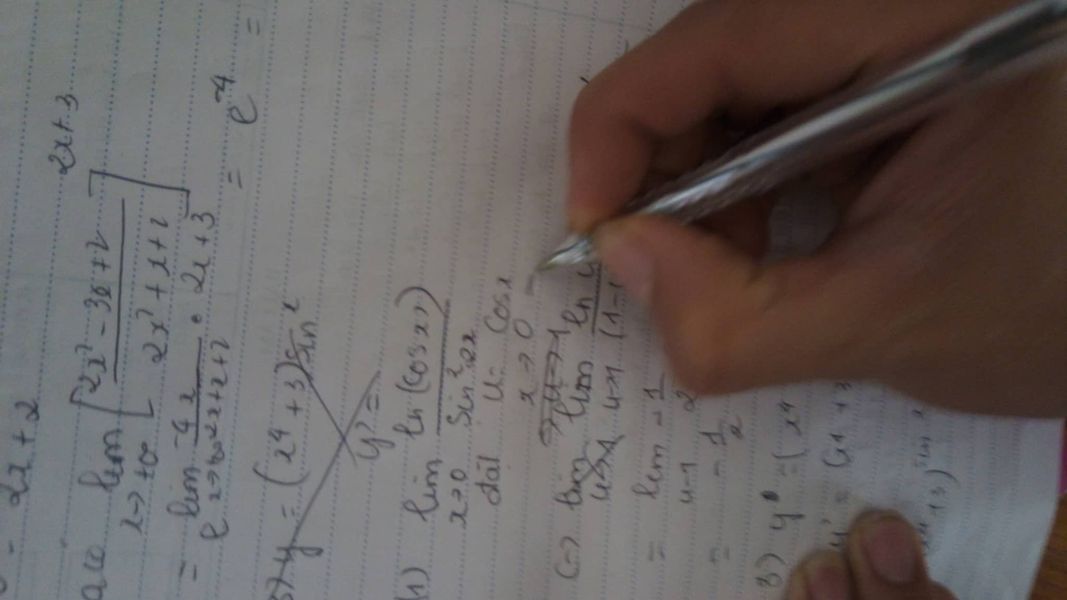 - 2x + 2
lim x→+∞ [ (2x² - 3x + 2) / (2x² + x + 2) ] ^ 2x+3
= e^ lim x→+∞ (-4x / 2x² + x + 2) • 2x + 3 = e^-4 =
y = (x⁴ + 3) sin x
y' =
1) lim x→0 ln (cos x) / sin² 2x
đặt u = cos x
x → 0
→ u → 1
(=) lim u→1 lim u→1 ln u
= lim u→1 -1 / 2
= - 1 / 2
3) y = (x⁴
sin x